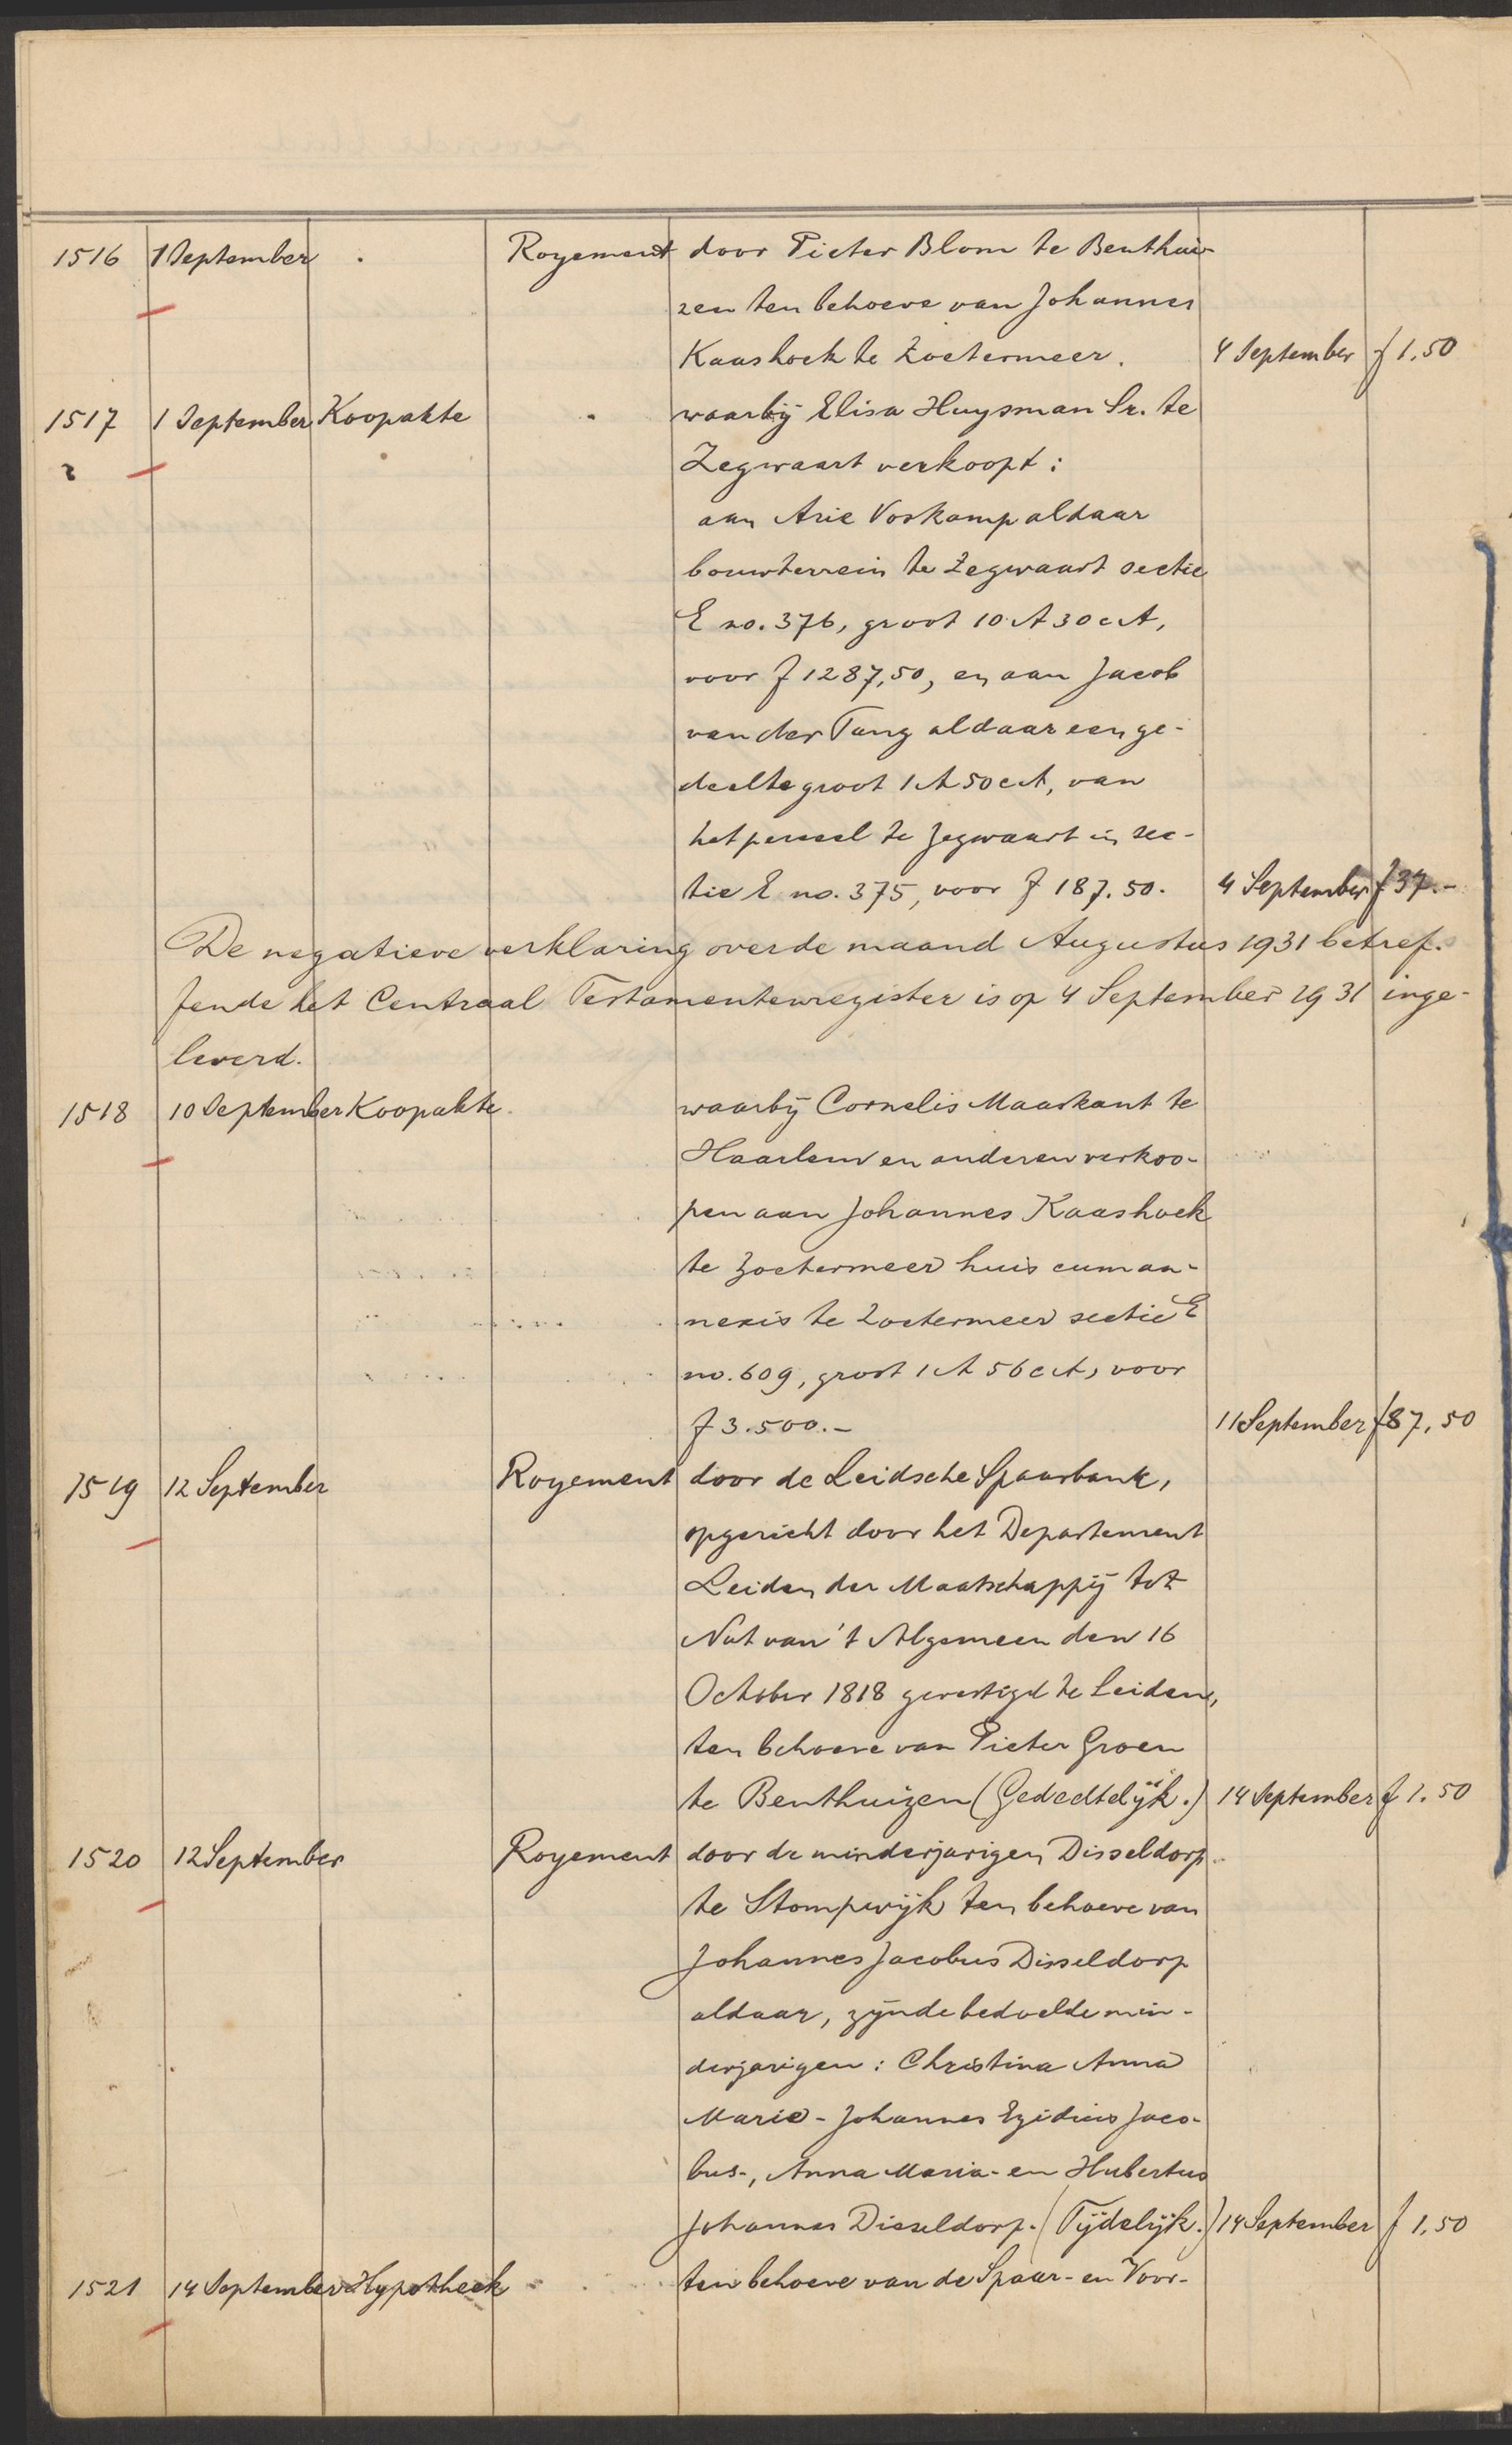 1516 1 September . Royement door Pieter Blom te Benthui-
zen ten behoeve van Johannes
Kaashoek te Zoetermeer. 4 September f 1.50
1517 1 September Koopakte . waarbij Elisa Huysman Sr. te
2 Zegwaart verkoopt:
aan Arie Voskamp aldaar
bouwterrein te Zegwaart sectie
E no. 376, groot 10 A 30 cA,
voor f 1287,50, en aan Jacob
van der Tang aldaar een ge-
deelte groot 1 A 50 cA, van
het perceel te Zegwaart in sec-
tie E no. 375, voor f 187.50. 4 September f 37.-
De negatieve verklaring over de maand Augustus 1931 betref-
fende het Centraal Testamentenregister is op 4 September 1931 inge-
leverd.
1518 10 September Koopakte. waarbij Cornelis Maaskant te
Haarlem en anderen verkoo-
pen aan Johannes Kaashoek
te Zoetermeer huis cum an-
nexis te Zoetermeer sectie E
no. 609, groot 1 A 56 cA, voor
f 3.500.- 11 September f 87,50
1519 12 September Royement door de Leidsche Spaarbank,
opgericht door het Departement
Leiden der Maatschappij tot
Nut van 't Algemeen den 16
October 1818 gevestigd te Leiden,
ten behoeve van Pieter Groen
te Benthuizen (Gedeeltelijk.) 14 September f 1.50
1520 12 September Royement door de minderjarigen Disseldorp
te Stompwijk ten behoeve van
Johannes Jacobus Disseldorp
aldaar, zijnde bedoelde min-
derjarigen: Christina Anna
Maria- Johannes Egidius Jaco-
bus-, Anna Maria- en Hubertus
Johannes Disseldorp. (Tijdelijk.) 14 September f 1,50
1521 14 September Hypotheek ten behoeve van de Spaar- en Voor-